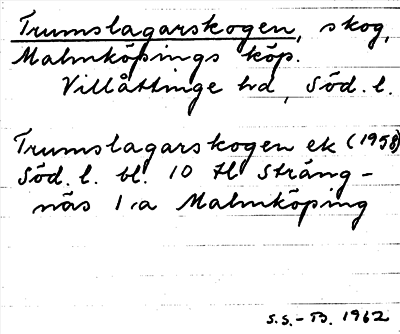 Trumslagarskogen, skog,
Malmköpings köp.
Villåttinge hd, Söd. l.
Trumslagarskogen ek (1958)
Söd. l. bl. 10 tl Sträng-
näs 1:a Malmköping
S.S.-B. 1962